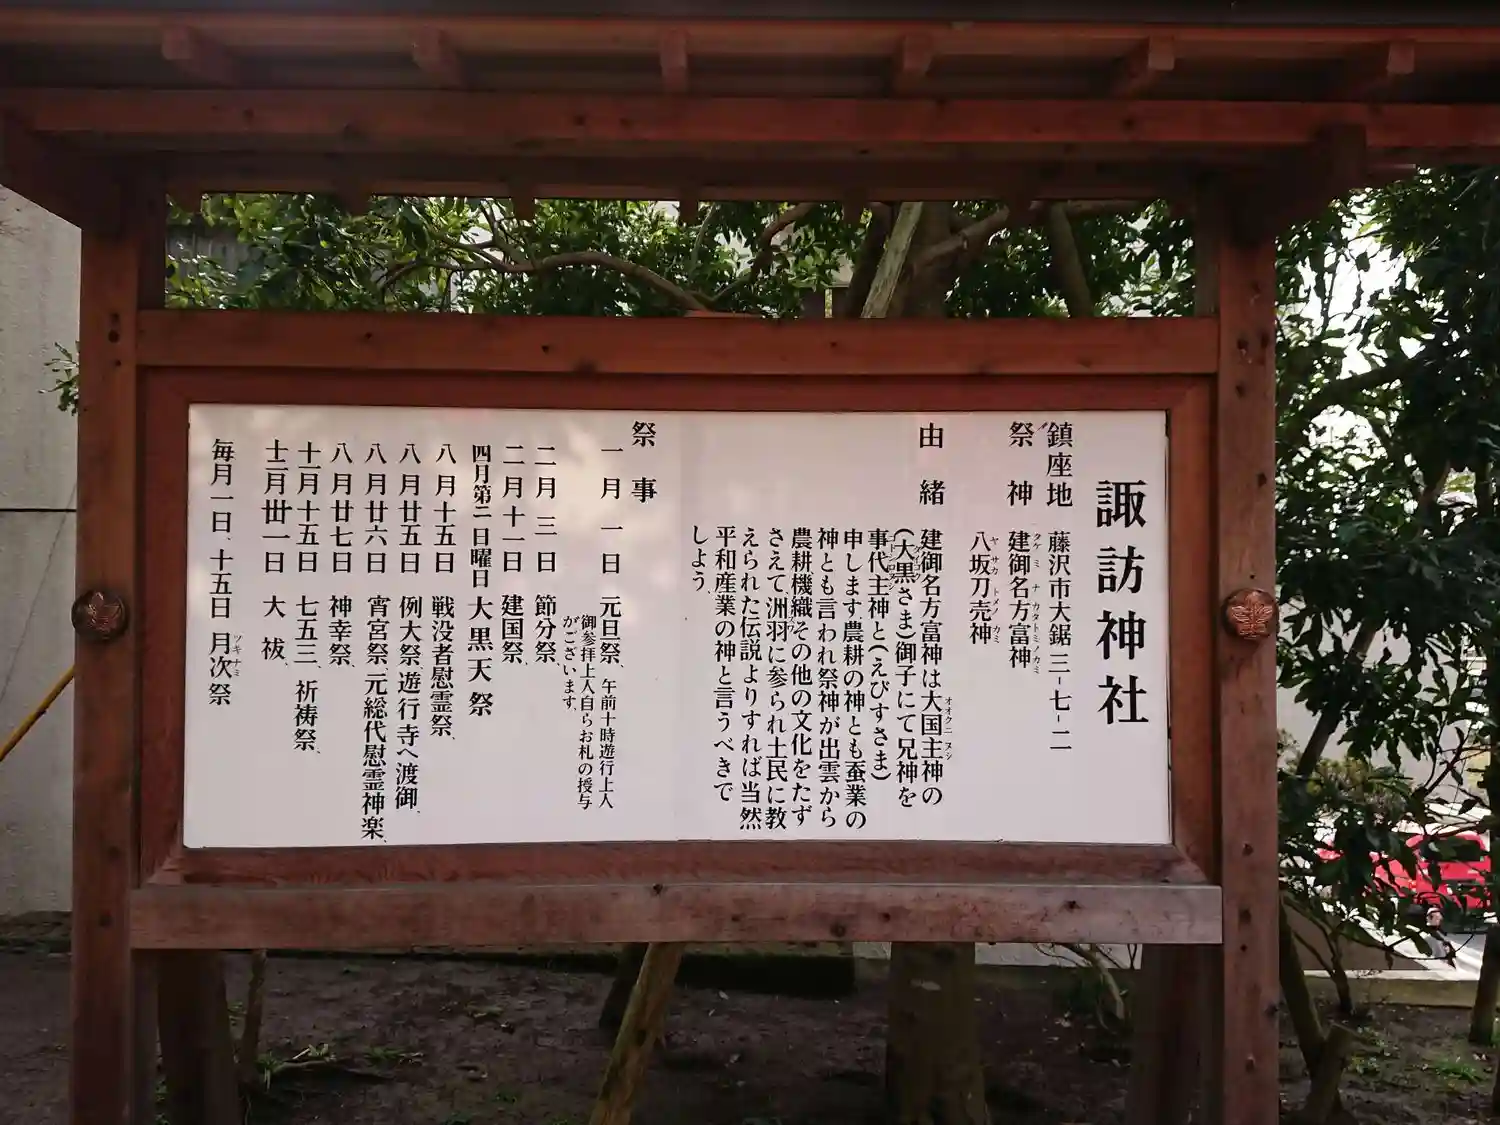 諏訪神社
鎮座地 藤沢市大鋸三-七-二
祭神 建御名方富神
タケミナカタトミノカミ
八坂刀売神
ヤサカトメノカミ
由緒 建御名方富神は大国主神の
オオクニヌシ
(大黒さま)御子にて兄神を
ダイコク
事代主神と(えびすさま)
コトシロヌシ
申します農耕の神とも蚕業の
神とも言われ祭神が出雲から
農耕機織その他の文化をたず
さえて洲羽に参られ土民に教
えられた伝説よりすれば当然
平和産業の神と言うべきで
しよう、
祭事
一月一日 元旦祭、午前十時遊行上人
御参拝上人自らお札の授与
がございます、
二月三日 節分祭、
二月十一日 建国祭、
四月第二日曜日 大黒天祭
八月十五日 戦没者慰霊祭、
八月廿五日 例大祭、遊行寺へ渡御、
八月廿六日 宵宮祭、元総代慰霊神楽、
八月廿七日 神幸祭、
十一月十五日 七五三、祈祷祭、
十二月卅一日 大祓、
毎月一日、十五日 月次祭
ツキナミ